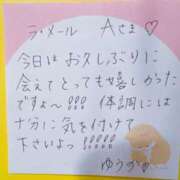 ラ・メール Aさま♡
今日はお久しぶりに
会えてとっても嬉しかった
ですよ〜!!! 体調には
十分に気を付けて
下さいよっ!!!!!
ゆうか